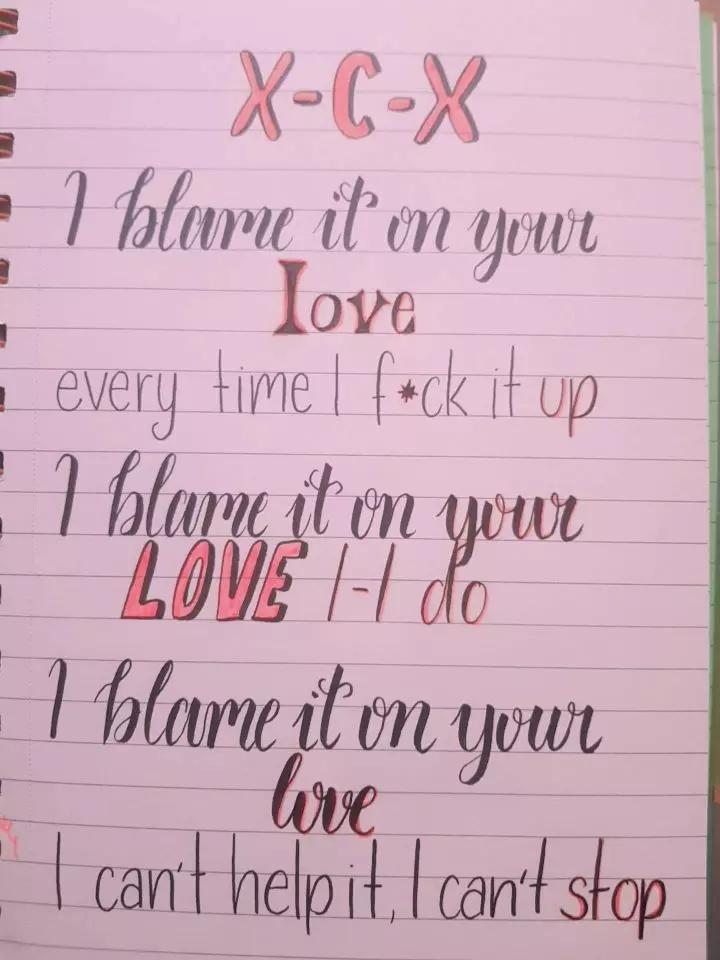 X-C-X
I blame it on your
love
every time I f*ck it up
I blame it on your
LOVE I-I do
I blame it on your
love
I can't help it, I can't stop